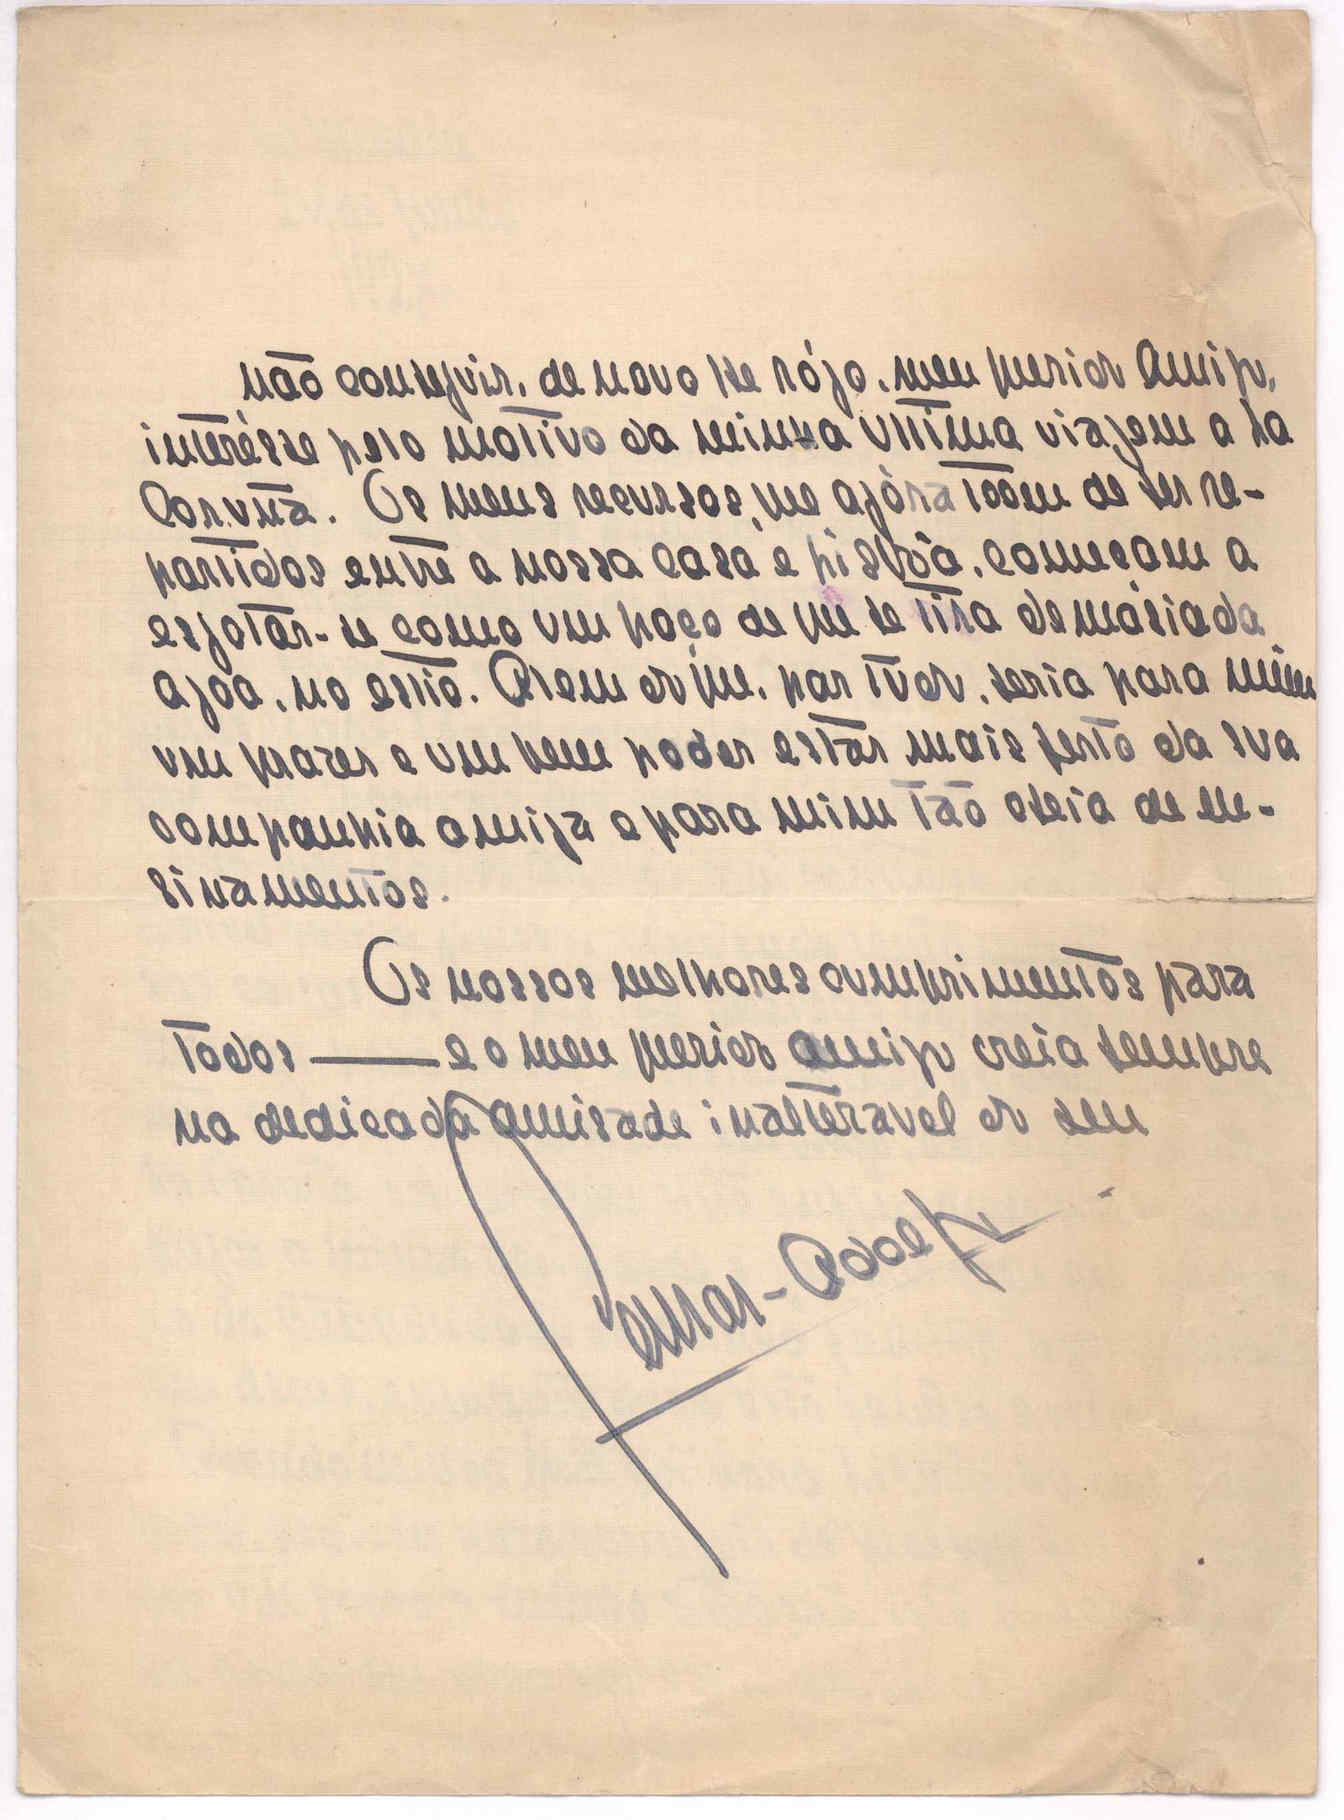 não conseguir. de novo lhe rógo. meu querido Amigo,
interésse pelo motivo da minha ultima viajem a La
Coruña. Os meus recursos, que agóra todem de ser re-
partidos entre a nossa casa e Lisbôa. começam a
esgotar-se como um poço de que se tira demásiada
agoa. no estio. Alem do que. por tudo. seria para mim
um prazer e um bem poder estar mais perto da sua
companhia amiga e para mim tão cheia de en-
sinamentos.
Os nossos melhores cumprimentos para
todos — e o meu querido amigo creia sempre
na dedicada amisade inalteravel do seu
Lemar-Adolfo